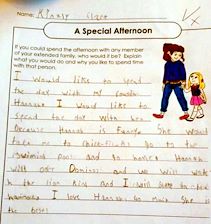 Name: Kinsey
A Special Afternoon
If you could spend the afternoon with any member
of your extended family, who would it be? Explain
what you would do and why you like to spend time
with that person.
I would like to spend
the day with my cousin
Hannah I would like to
spend the day with her
because Hannah is funny. She would
take me to chick-fil-a go to the
Swimming pool and to Hannah
will order Dominos and we will watch
the lion king and I will
I love Hannah So much She is
the best